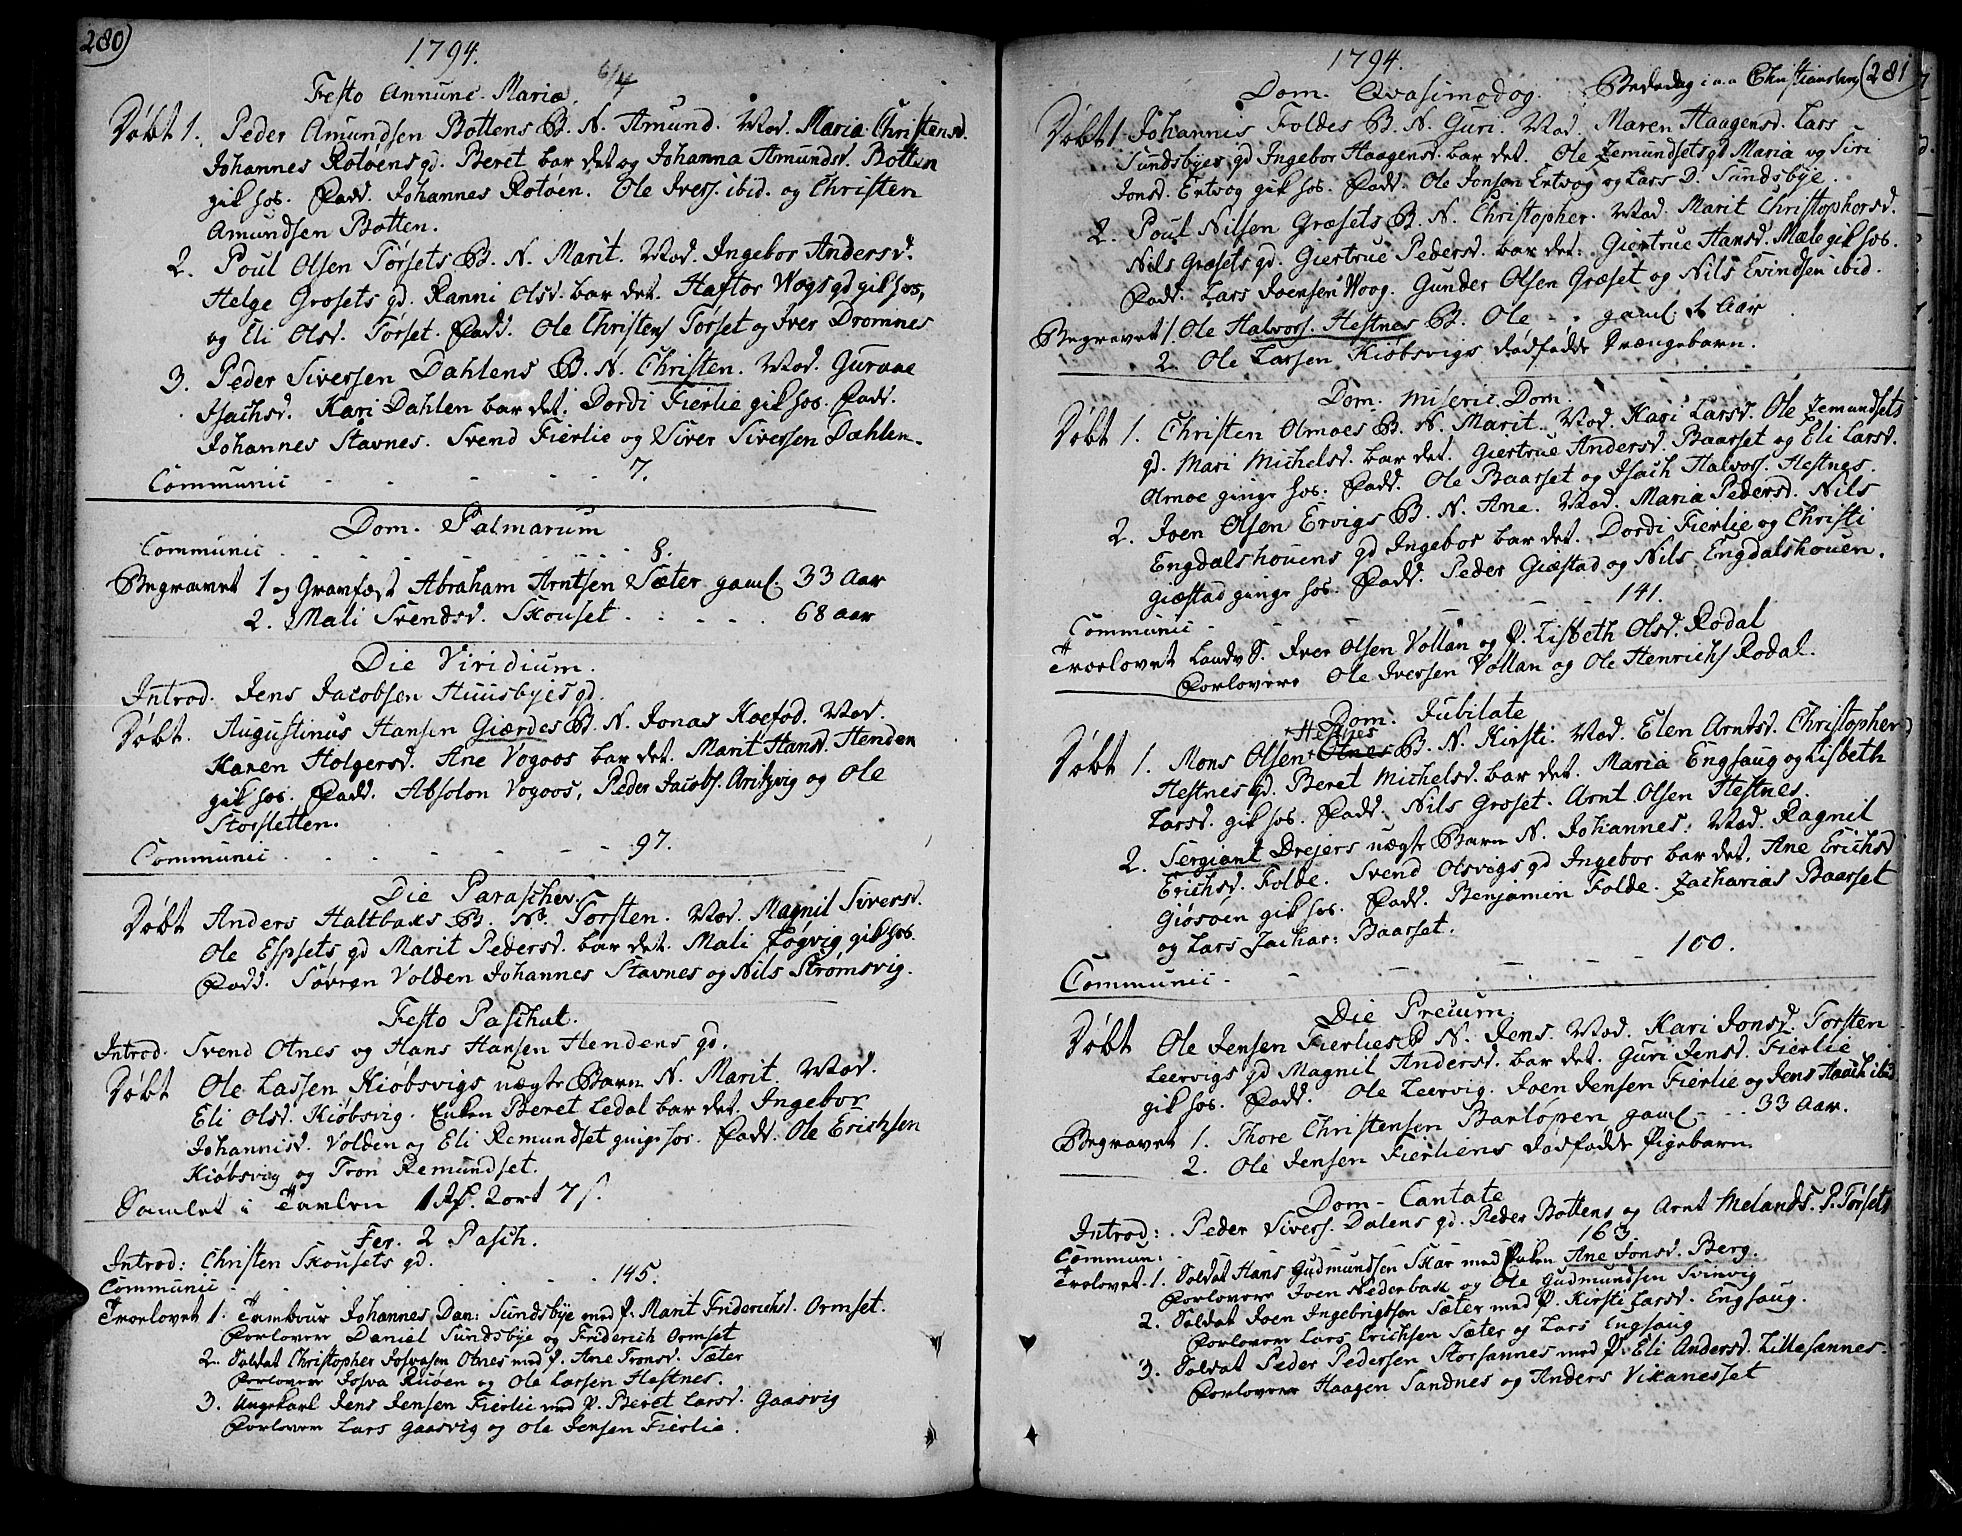 280)
1794.
Festo Annunc. Mariæ. 6/4
Døbt 1. Peder Amundsen Bottens B. N. Amund. Mod. Maria Christensd.
Johannes Rotøens gd. Beret bar det og Johanna Amundsd. Botten
gik hos. Fadd. Johannes Rotøen. Ole Ivers. ibid. og Christen
Amundsen Botten.
2. Poul Olsen Torsets B. N. Marit. Mod. Ingebor Andersd.
Helge Grosets gd. Ranni Olsd. bar det. Haftor Wogs gd gik hos,
og Eli Olsd. Torset. Fadd. Ole Christens Torset og Iver Dromnes
3. Peder Siversen Dahlens B. N. Christen. Mod. Gurane
Isachsd. Kari Dahlen bar det. Dordi Fierlie gik hos. Fadd.
Johannes Stavnes. Svend Fierlie og Siver Siversen Dahlen.
Communic - - - - - 7.
Dom. Palmarum
Communic - - - - - 8.
Begravet 1 og Gravfæst Abraham Arntsen Sæter gaml. 33 Aar
2. Mali Svendsd. Skouset . . . . . 68 aar
Die Viridium.
Introd. Jens Jacobsen Huusbyes gd.
Døbt. Augustinus Hansen Giærdes B. N. Jonas Koefod. Mod.
Karen Holgersd. Ane Vogoos bar det. Marit Hansd. Henden
gik hos. Fadd. Absolon Vogoos, Peder Jacobs. Aritzvig og Ole
Storsletten.
Communic - - - - - 97.
Die Paraschev.
Døbt Anders Haltbaks B. N. Torsten. Mod. Magnil Siversd.
Ole Espsets gd Marit Pedersd. bar det. Mali Løgvig gik hos.
Fadd. Søvren Volden Johannes Stavnes og Nils Strømsvig.
Festo Paschat.
Introd. Svend Otnes og Hans Hansen Hendens gd.
Døbt Ole Lassen Kiøbsvigs uægte Barn N. Marit Mod.
Eli Olsd. Kiøbsvig. Enken Beret Ledal bar det. Ingebor
Johannisd. Volden og Eli Remundset ginge hos. Fadd. Ole Erichsen
Kiøbsvig og Tron Remundset.
Samlet i Tavlen 1 Rd. 2 ort 7 s.
Fer. 2 Pasch.
Introd: Christen Skousets gd.
Communic - - - - - 145.
Trorlovet 1. Tambour Johannes Dan: Sundsbye med P. Marit Friderichsd. Ormset.
Forlovere Daniel Sundsbye og Friderich Ormset
2. Soldat Christopher Josvasen Otnes med P. Ane Tronsd. Sæter
Forlovere Josva Ruøen og Ole Larsen Hestnes.
3. Ungekarl Jens Jensen Fierlie med P. Beret Larsd. Gaasvig
Forlovere Lars Gaasvig og Ole Jensen Fierlie.
1794.
(281
Dom. Qvasimodog. Bededag i a.a Christiansberg
Døbt 1. Johannis Foldes B. N. Guri. Mod. Maren Haagensd. Lars
Sundsbyes gd Ingebor Haagensd. bar det. Ole Jemundsets gd Maria og Siri
Jonsd. Ertvog gik hos. Fadd. Ole Jonsen Ertvog og Lars D. Sundsbye.
2. Poul Nilsen Græsets B. N. Christopher. Mod. Marit Christophersd.
Nils Græsets gd. Giertrue Pedersd. bar det. Giertrue Hansd. Mæle gik hos.
Fadd. Lars Joensen Woog. Gunder Olsen Græset og Nils Evindsen ibid.
Begravet 1. Ole Halvors. Hestnes B. Ole - - gaml. Aar
2. Ole Larsen Kiøbsvigs dødfødde Drængebarn.
Dom. Miseric. Dom.
Døbt 1. Christen Olmoes B. N. Marit. Mod. Kari Larsd. Ole Jemundsets
gd. Mari Michelsd. bar det. Giertrue Andersd. Baarset og Eli Larsd.
Olmoe ginge hos. Fadd. Ole Baarset og Isach Halvors. Hestnes.
2. Joen Olsen Ervigs B. N. Ane. Mod. Maria Pedersd. Nils
Engdalshouens gd Ingebor bar det. Dordi Fierlie og Christi
Giæstad ginge hos. Fadd. Peder Giæstad og Nils Engdalshouen.
Communic - - - - - 141.
Trorlovet Landv S. Iver Olsen Vollan og P. Lisbeth Olsd. Rodal
Forlovere Ole Iversen Vollan og Ole Henrichs Rodal.
Dom. Jubilate
Hestnes
Døbt 1. Mons Olsen Otnes B. N. Kirsti. Mod. Elen Arntsd. Christopher
Hestnes gd. Beret Michelsd. bar det. Maria Engsaug og Lisbeth
Larsd. gik hos. Fadd. Nils Groset. Arnt Olsen Hestnes.
2. Sergiant Drejers uægte Barn N. Johannes. Mod. Ragnil
Erichsd. Folde. Svend Olsvigs gd Ingebor bar det. Ane Erichsd
Giøsøen gik hos. Fadd. Benjamin Folde. Zacharias Baarset
og Lars Zachar: Baarset.
Communic - - - - - 100.
Die Precum.
Døbt Ole Jensen Fierlies B N. Jens. Mod. Kari Jonsd. Torsten
Leervigs gd Magnil Andersd. bar det. Guri Jensd. Fierlie
gik hos. Fadd. Ole Leervig. Joen Jensen Fierlie og Jens Haach ibid
Begravet 1. Thore Christensen Barlopen gaml - - . 33 Aar.
2. Ole Jensen Fierliens dødfødde Pigebarn.
Dom - Cantate
Introd: Peder Sivers. Dalens gd. Peder Bottens og Arnt Melands. P. Torsets
Commun: 163
Trolovet. 1. Soldat Hans Gudmundsen Skar med Enken Ane Jonsd. Berg.
Forlovere Joen Nederbak og Ole Gudmundsen Svinvig
2. Soldat Joen Ingebrigtsen Sæter med P. Kirsti Larsd. Engsaug.
Forlovere Lars Erichsen Sæter og Lars Engsaug
3. Soldat Peder Pedersen Storsannes med P. Eli Andersd. Lillesannes.
Forlovere Haagen Sandnes og Anders Vikanesset